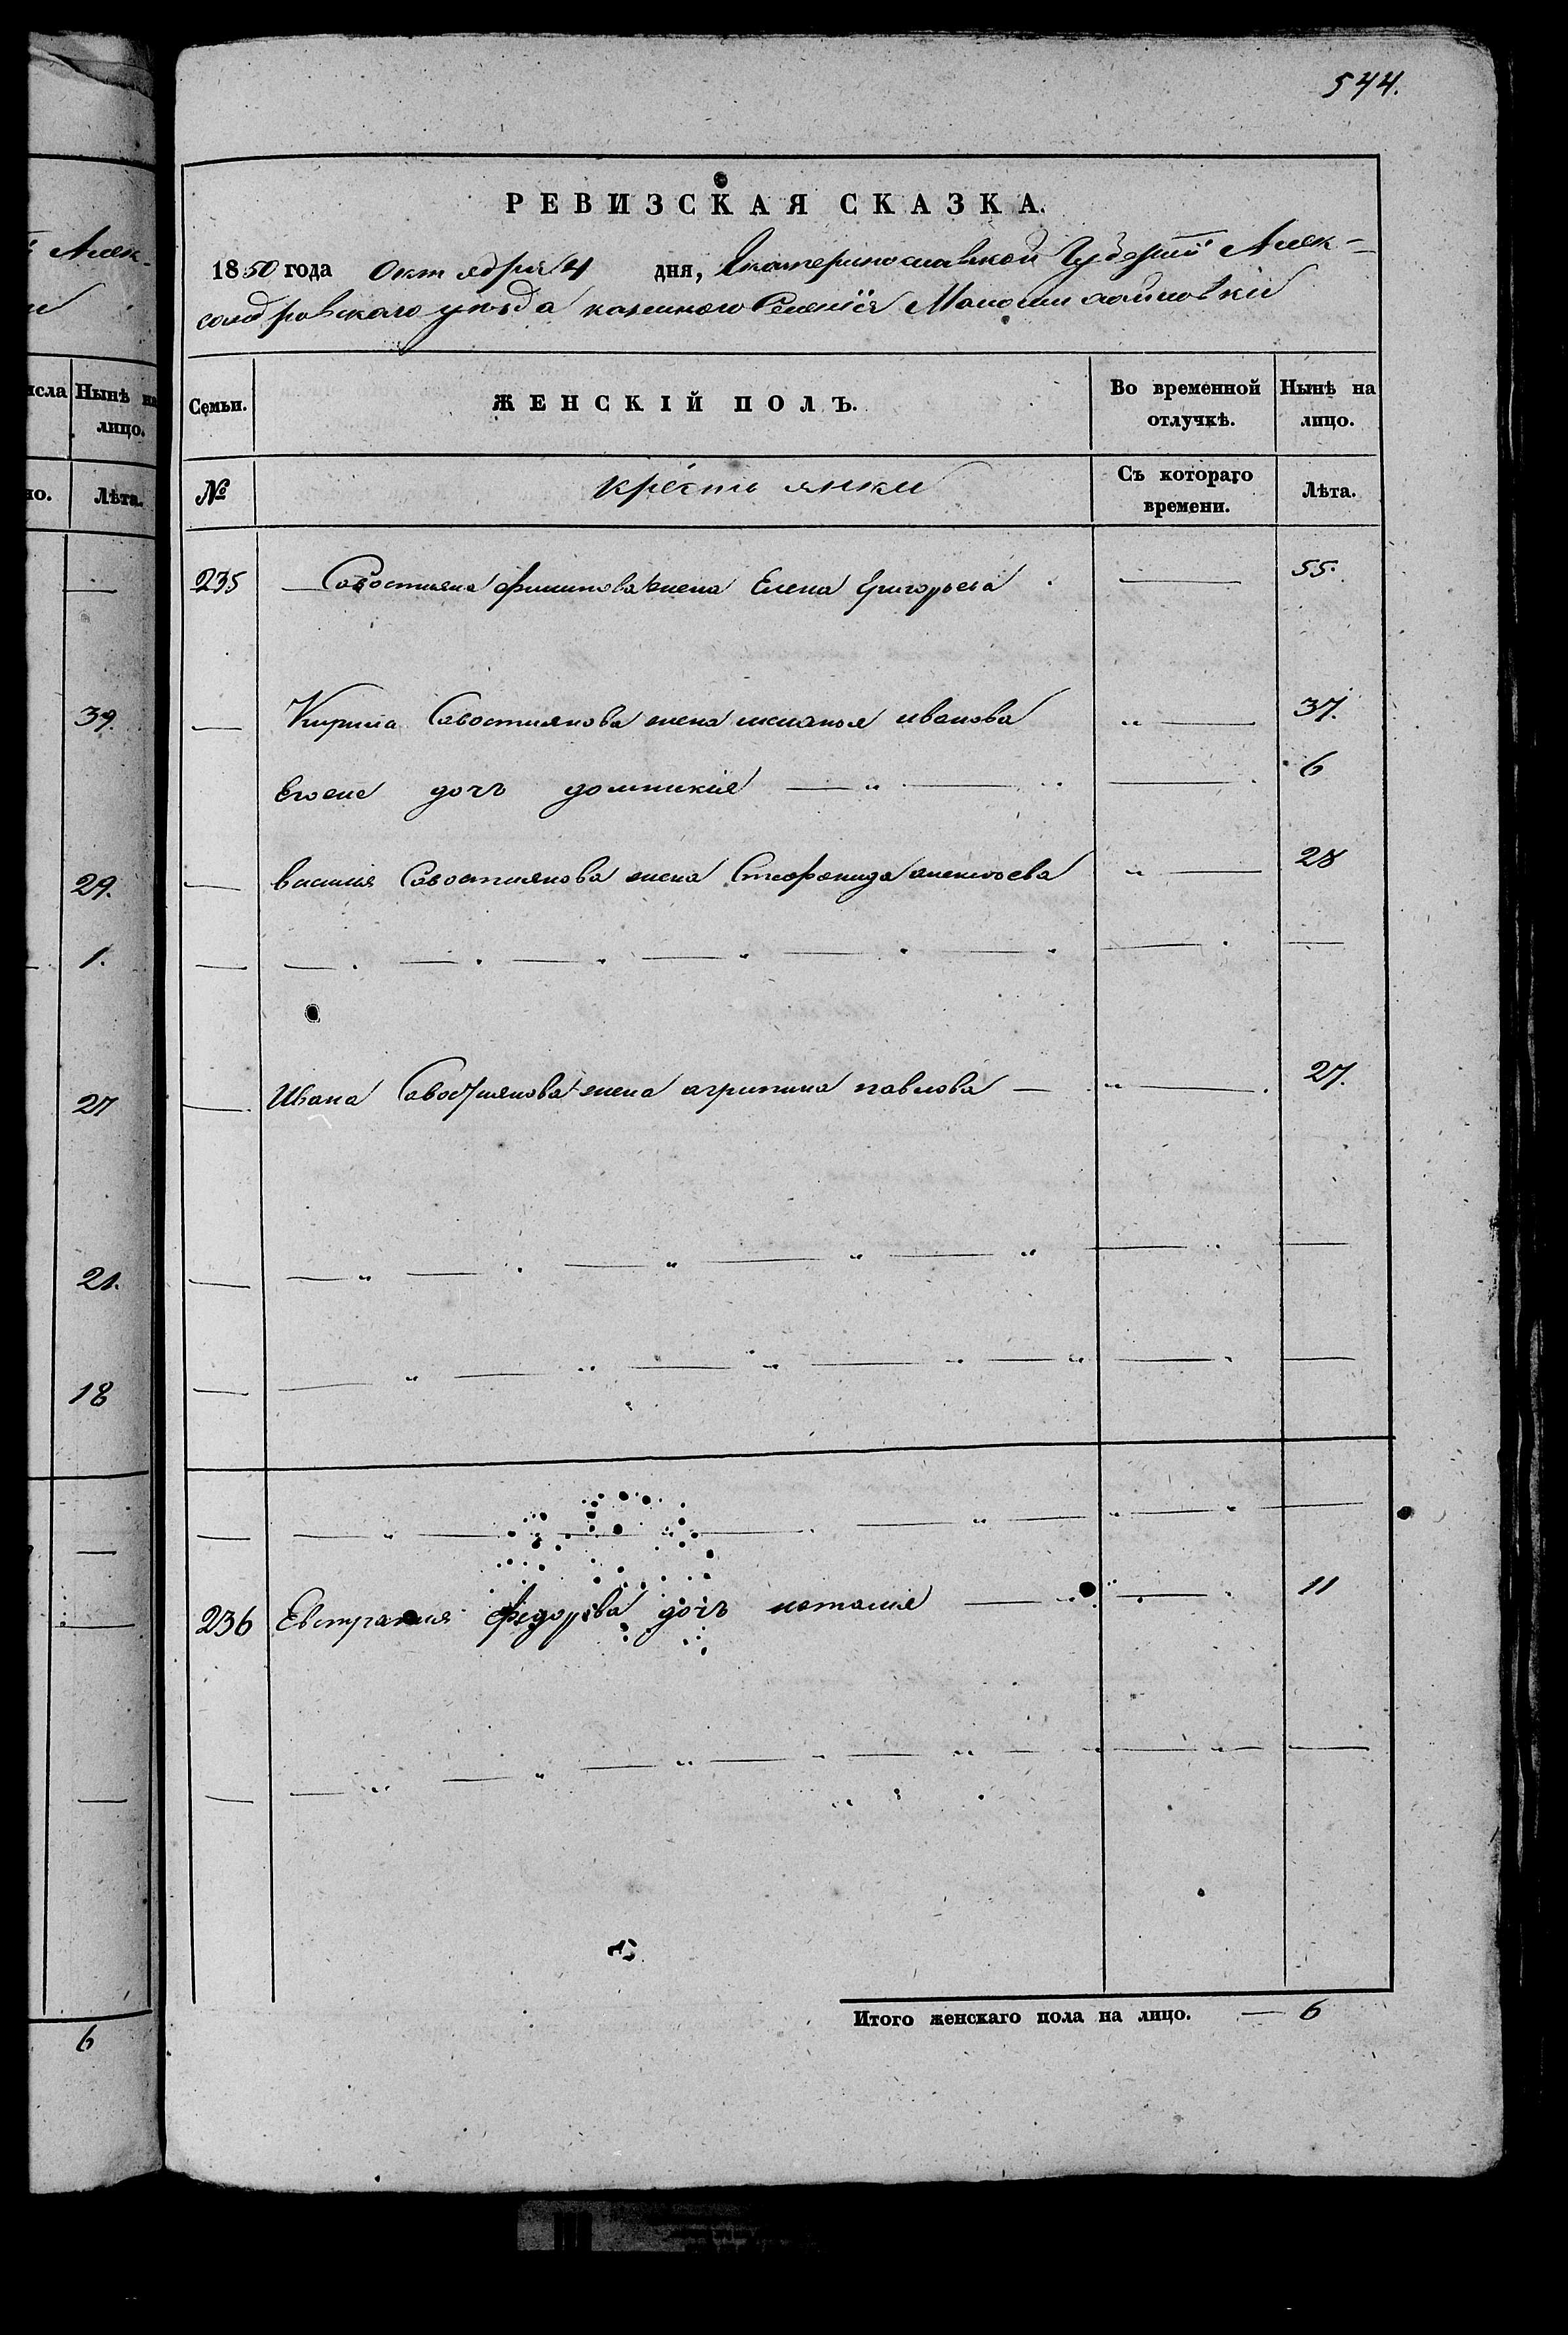 544.
РЕВИЗСКАЯ СКАЗКА.
1850 года Октября 4 дня, Екатеринославской Губернии Алек-
сандровского уѣзда казенного Селения Маломихайловки
Алек-
исла Нынѣ на лицо.
но. Лѣта.
Семьи. ЖЕНСКІЙ ПОЛЪ. Во временной отлучкѣ. Нынѣ на лицо.
№ крестьянки Съ котораго времени. Лѣта.
235 Савостияна Филипова жена Елена Григорьева 55.
39. Кирила Савостиянова жена меланья иванова 37.
Егоже дочь домникия 6
29. василия Савостиянова жена Стефанида алексѣева 28
1.
27 Ивана Савостиянова жена агрипина павлова 27.
21.
18
236 Евстрания федорова дочь наталия 11
6
Итого женскаго пола на лицо. 6